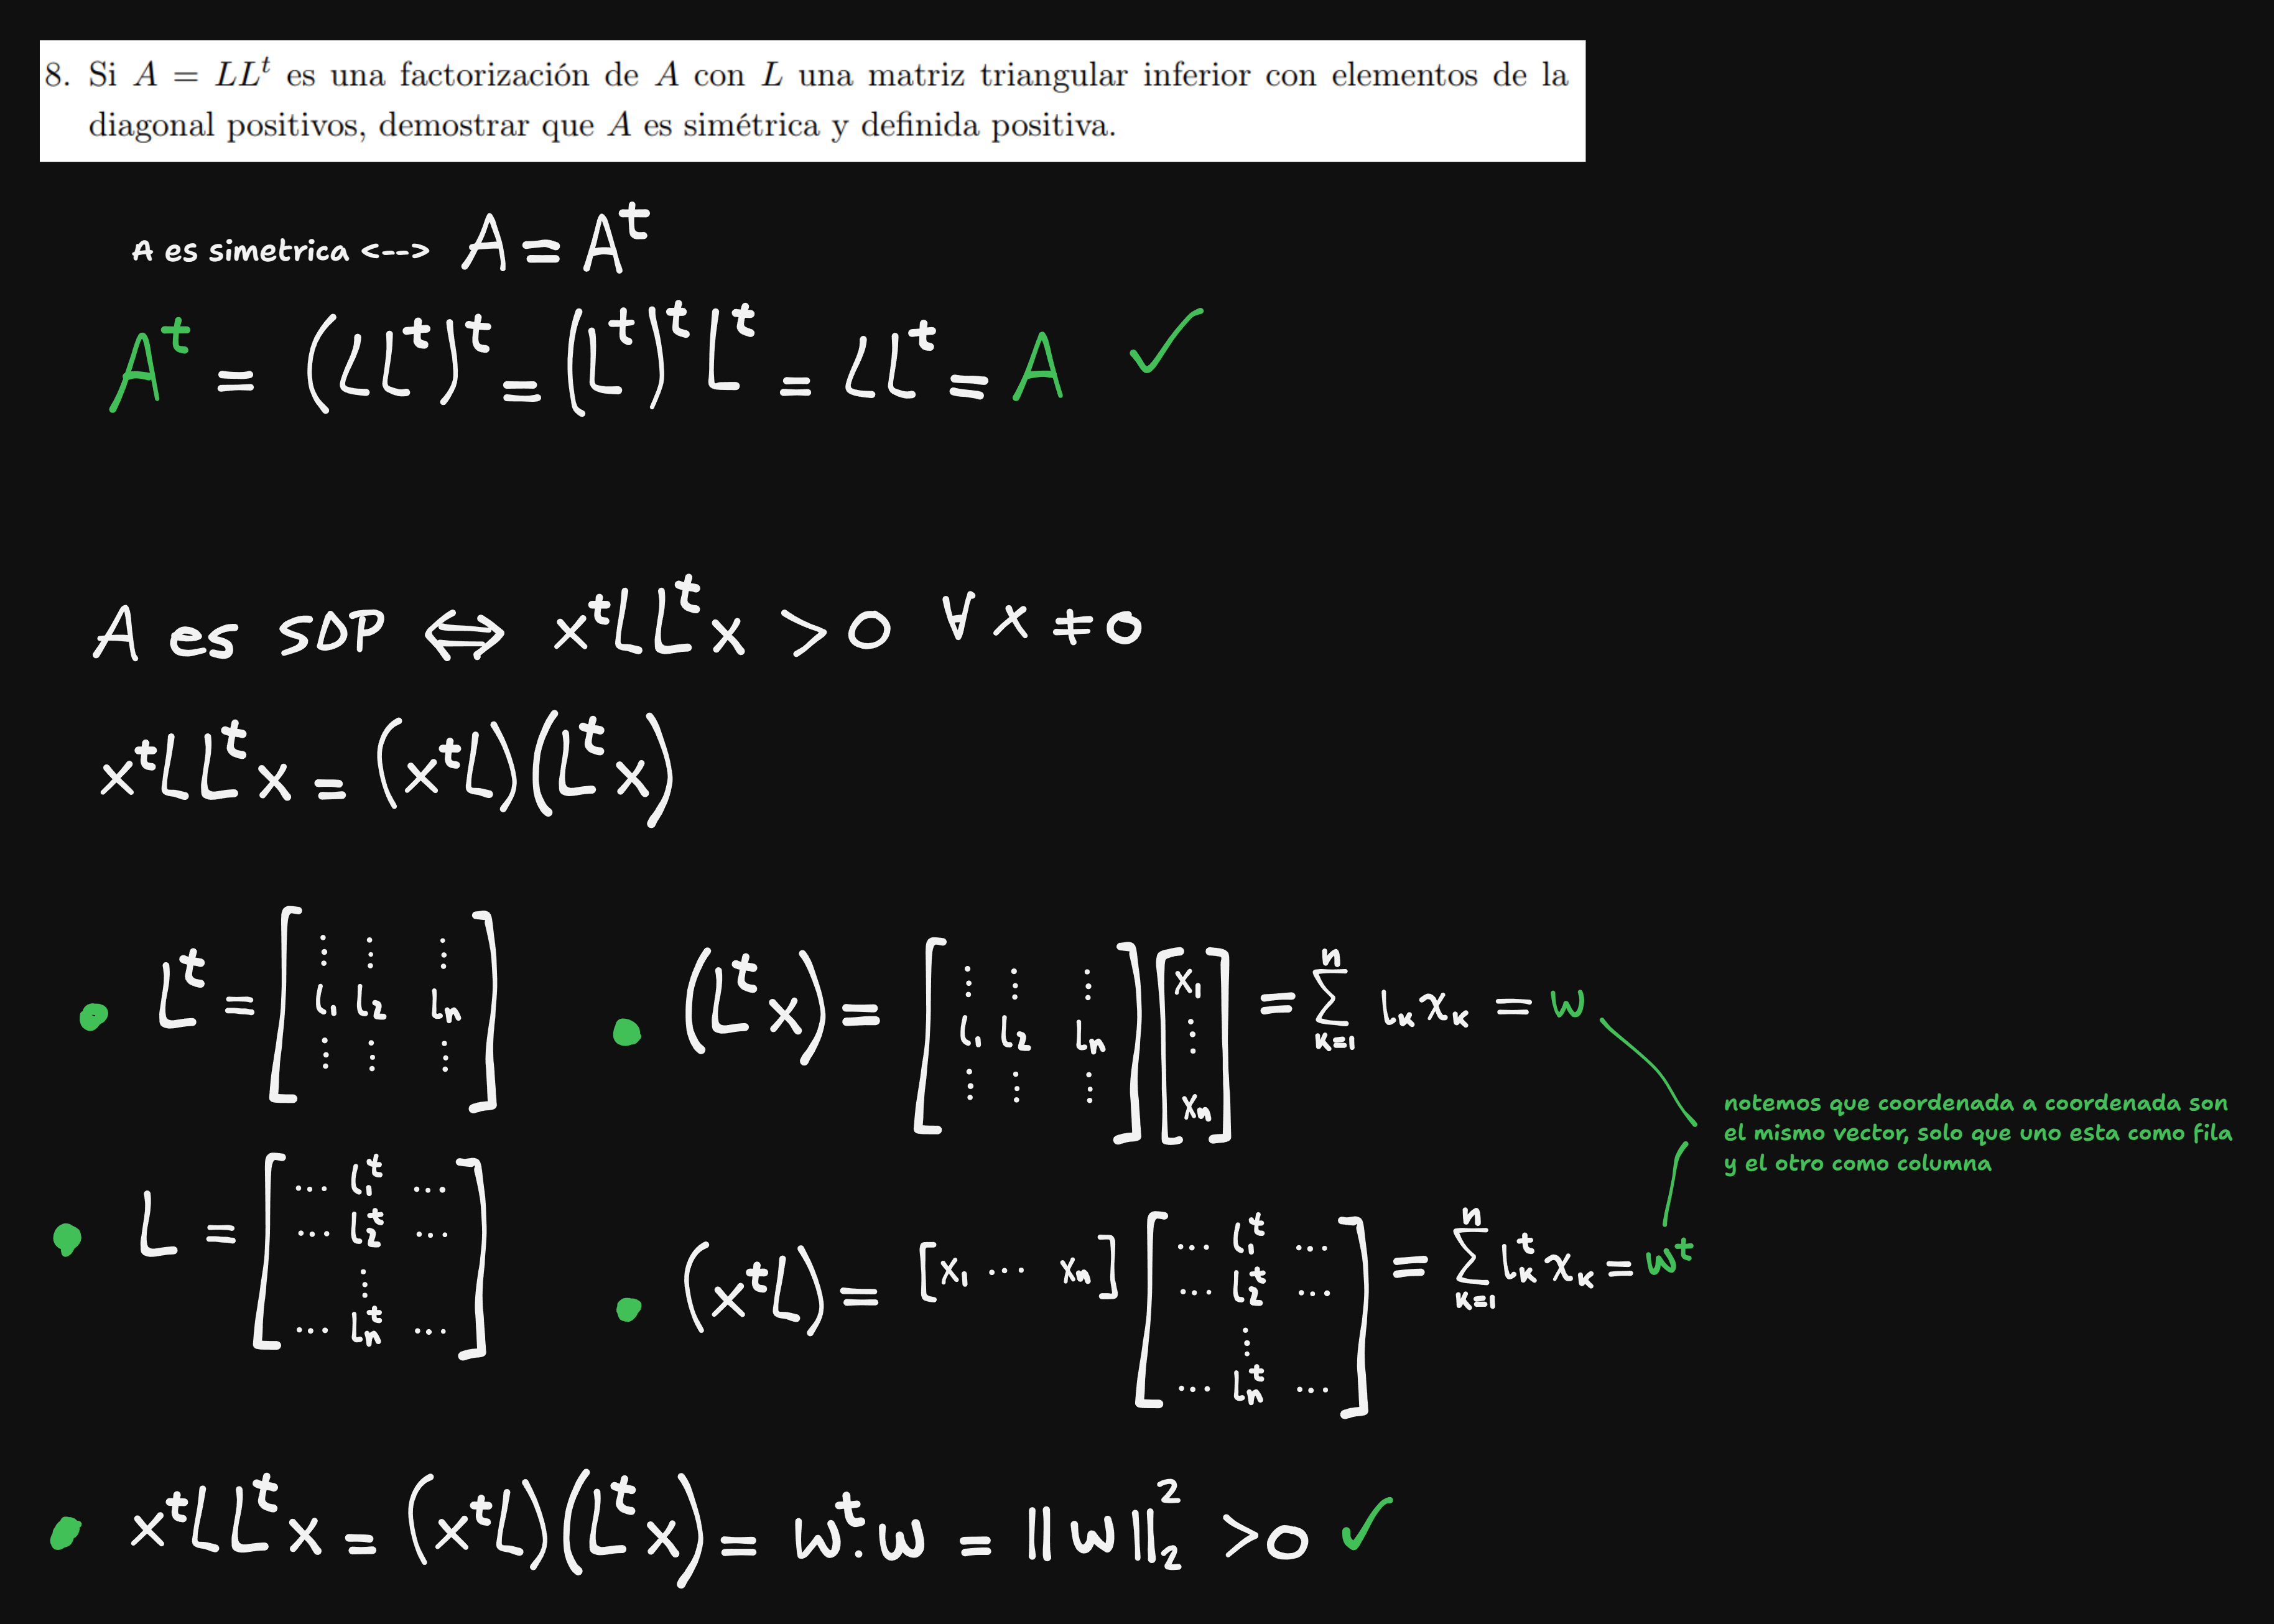 8. Si A = LLᵗ es una factorización de A con L una matriz triangular inferior con elementos de la
diagonal positivos, demostrar que A es simétrica y definida positiva.
A es simetrica <--> A = Aᵗ
Aᵗ = (LLᵗ)ᵗ = (Lᵗ)ᵗ Lᵗ = LLᵗ = A ✓
A es SDP ⟺ xᵗLLᵗx > 0 ∀ x ≠ 0
xᵗLLᵗx = (xᵗL)(Lᵗx)
• Lᵗ = [ ⋮ ⋮ ⋮ l₁ l₂ lₙ ⋮ ⋮ ⋮ ]
• (Lᵗx) = [ ⋮ ⋮ ⋮ l₁ l₂ lₙ ⋮ ⋮ ⋮ ] [ x₁ ⋮ xₙ ] = ∑ₖ₌₁ⁿ lₖxₖ = w
notemos que coordenada a coordenada son
el mismo vector, solo que uno esta como fila
y el otro como columna
• L = [ ... l₁ᵗ ... ... l₂ᵗ ... ⋮ ... lₙᵗ ... ]
• (xᵗL) = [x₁ ... xₙ] [ ... l₁ᵗ ... ... l₂ᵗ ... ⋮ ... lₙᵗ ... ] = ∑ₖ₌₁ⁿ lₖᵗxₖ = wᵗ
• xᵗLLᵗx = (xᵗL)(Lᵗx) = wᵗ.w = ||w||₂² > 0 ✓